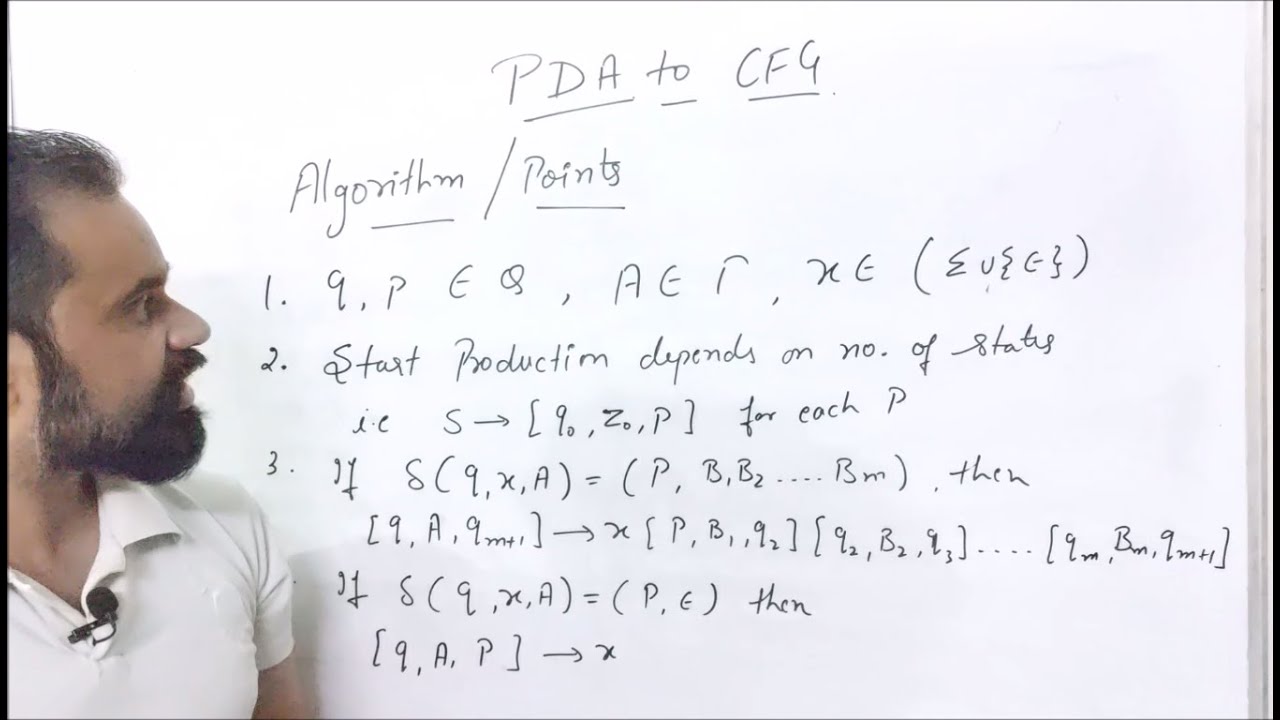 PDA to CFG
Algorithm / Points
1. q, p ∈ Q, A ∈ Γ, x ∈ (Σ ∪ {∈})
2. Start Production depends on no. of states
i.e S → [q₀, z₀, P] for each P
3. If δ(q, x, A) = (P, B₁B₂ .... Bm), then
[q, A, qm+1] → x [P, B₁, q₂] [q₂, B₂, q₃] ..... [qm, Bm, qm+1]
If δ(q, x, A) = (P, ∈) then
[q, A, P] → x